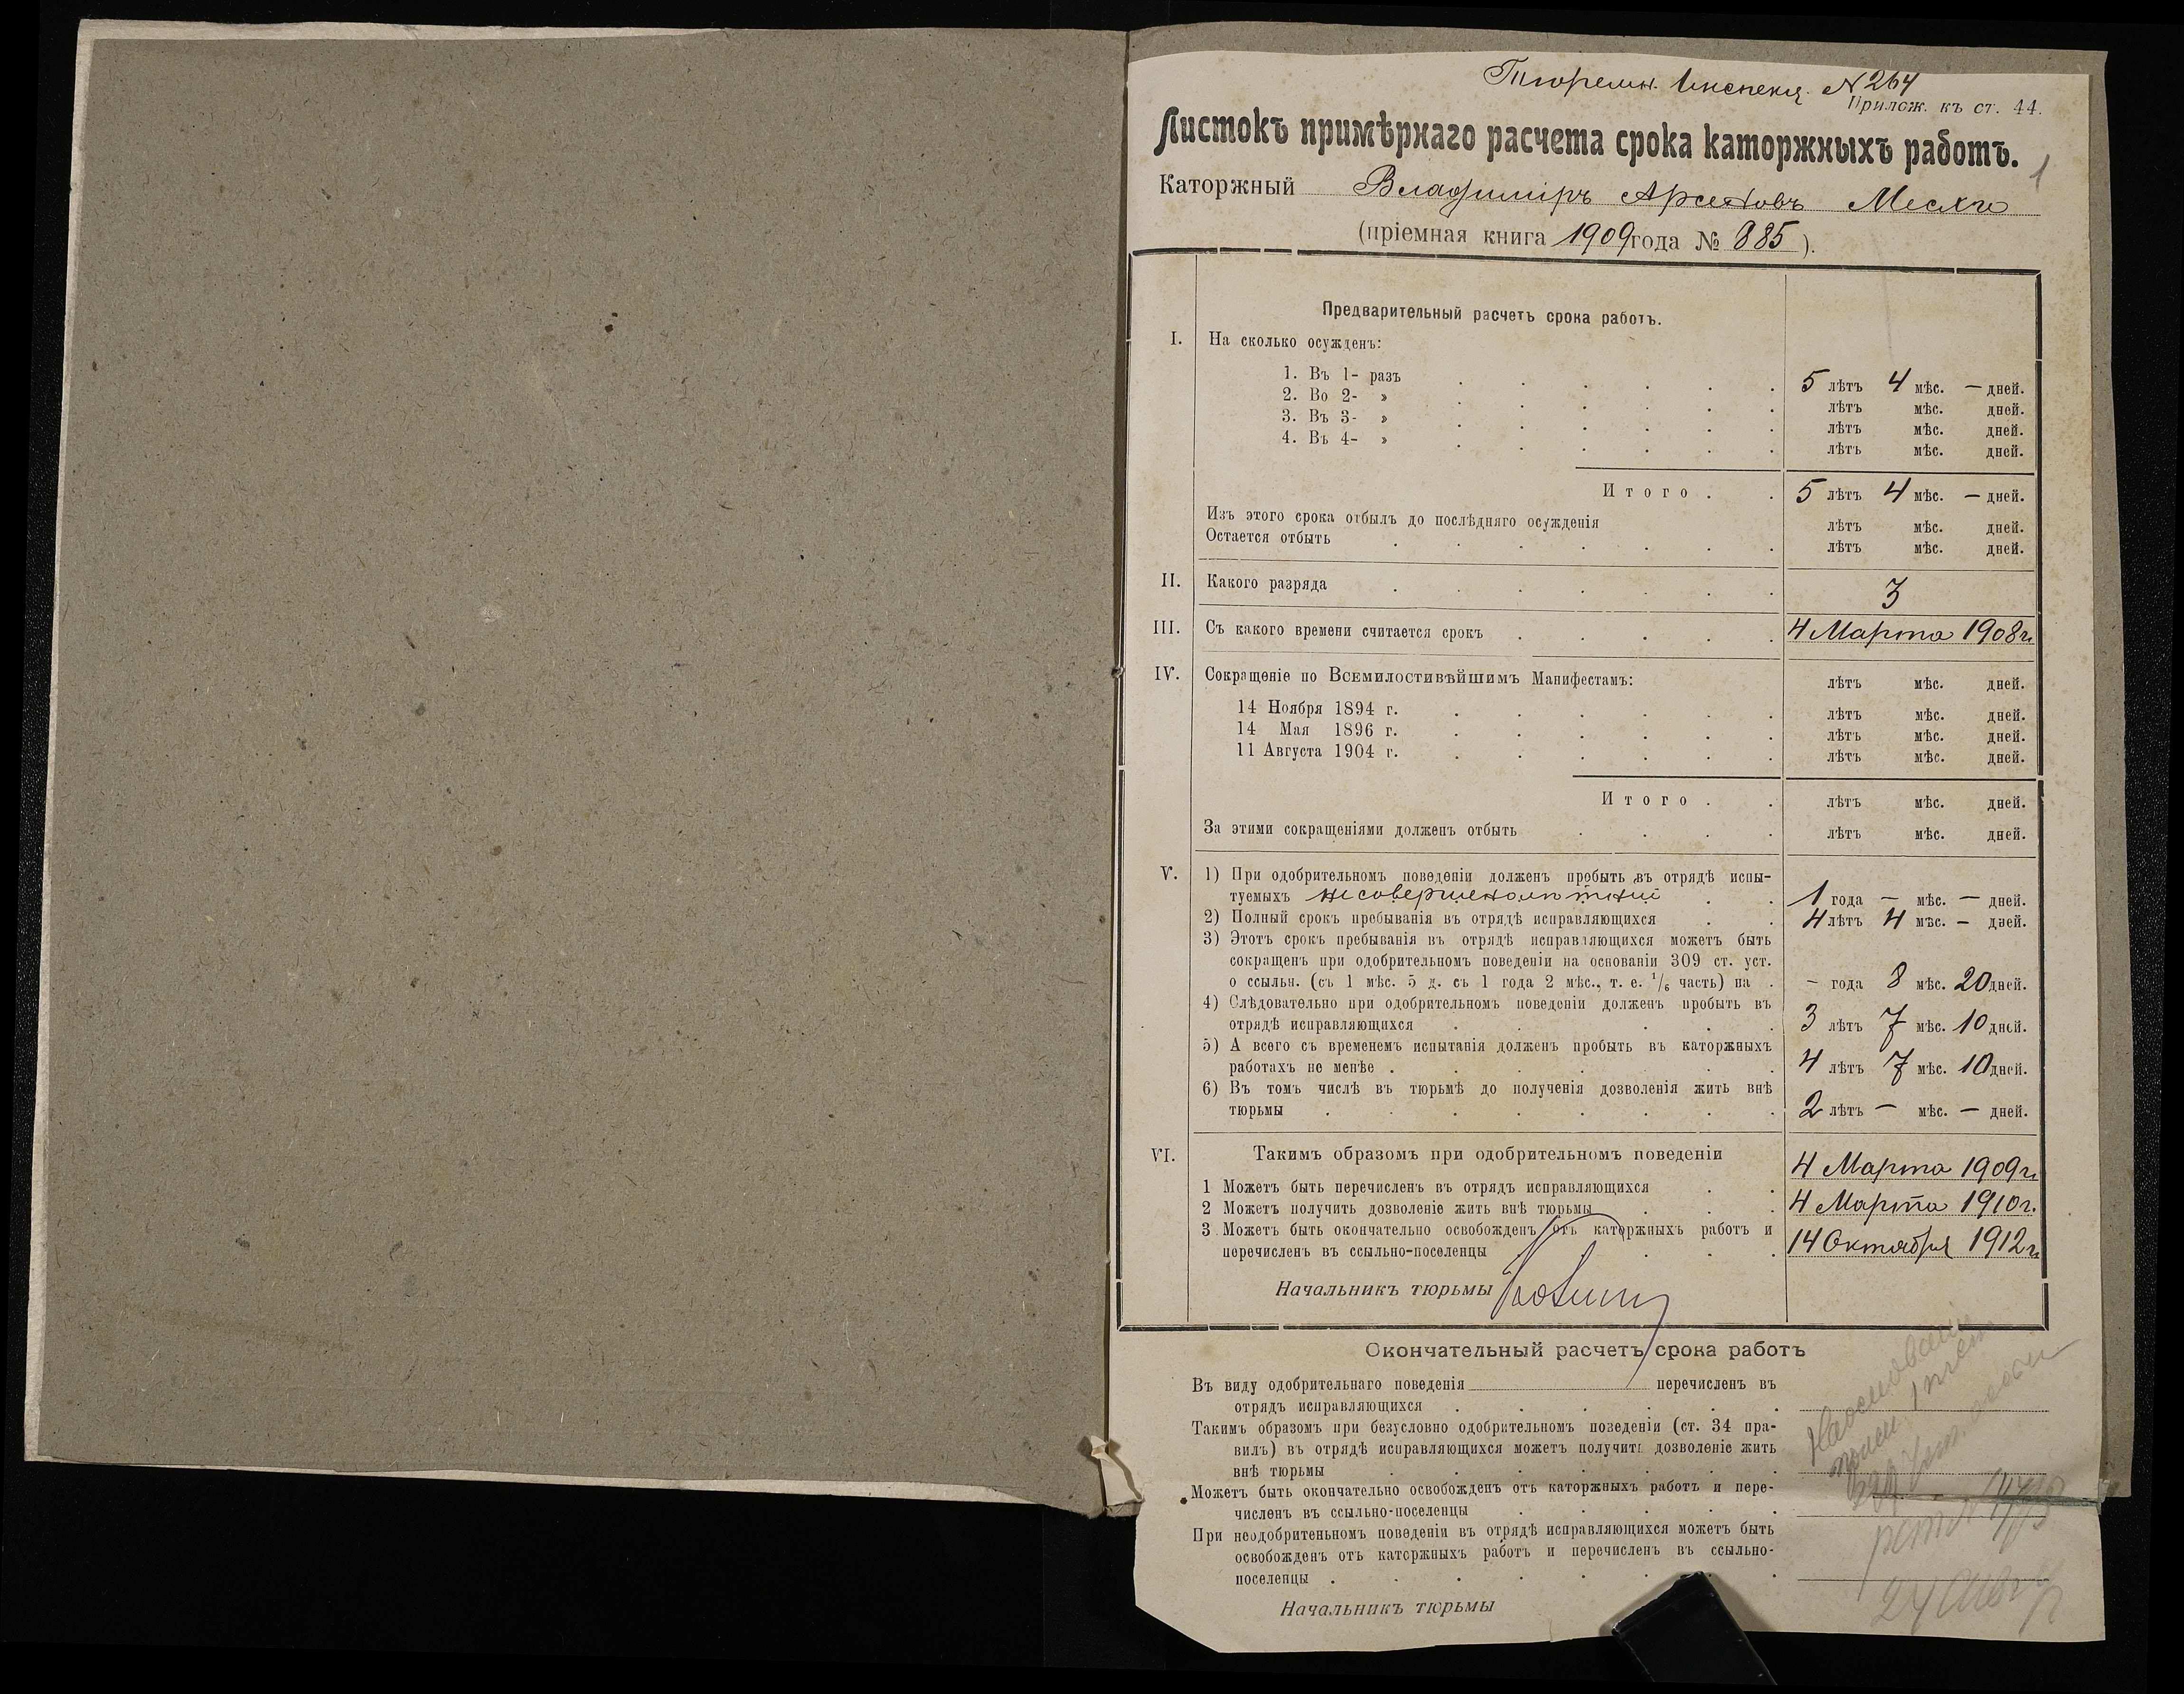 Тюремн. Инспекц. № 264
Прилож. къ ст. 44.
Листокъ примѣрнаго расчета срока каторжныхъ работъ.
1
Каторжный Владиміръ Арсеновъ
(пріемная книга 1909 года № 885).
Предварительный расчетъ срока работъ.
I. На сколько осужденъ:
1. Въ 1- разъ . . . . . . 5 лѣтъ 4 мѣс. — дней.
2. Во 2- » . . . . . . лѣтъ мѣс. дней.
3. Въ 3- » . . . . . . лѣтъ мѣс. дней.
4. Въ 4- » . . . . . . лѣтъ мѣс. дней.
Итого . . 5 лѣтъ 4 мѣс. — дней.
Изъ этого срока отбылъ до послѣдняго осужденія лѣтъ мѣс. дней.
Остается отбыть . . . . . . . лѣтъ мѣс. дней.
II. Какого разряда . . . . . . . 3
III. Съ какого времени считается срокъ . . . . . 4 Марта 1908 г.
IV. Сокращеніе по Всемилостивѣйшимъ Манифестамъ: лѣтъ мѣс. дней.
14 Ноября 1894 г. . . . . . . лѣтъ мѣс. дней.
14 Мая 1896 г. . . . . . . лѣтъ мѣс. дней.
11 Августа 1904 г. . . . . . . лѣтъ мѣс. дней.
Итого . . лѣтъ мѣс. дней.
За этими сокращеніями долженъ отбыть . . . . лѣтъ мѣс. дней.
V. 1) При одобрительномъ поведеніи долженъ пробыть въ отрядѣ испы-
туемыхъ несовершеннолѣтній . . 1 года — мѣс. — дней.
2) Полный срокъ пребыванія въ отрядѣ исправляющихся . . 4 лѣтъ 4 мѣс. — дней.
3) Этотъ срокъ пребыванія въ отрядѣ исправляющихся можетъ быть
сокращенъ при одобрительномъ поведеніи на основаніи 309 ст. уст.
о ссыльн. (съ 1 мѣс. 5 д. съ 1 года 2 мѣс., т. е. 1/6 часть) на . — года 8 мѣс. 20 дней.
4) Слѣдовательно при одобрительномъ поведеніи долженъ пробыть въ
отрядѣ исправляющихся . . . . . 3 лѣтъ 7 мѣс. 10 дней.
5) А всего съ временемъ испытанія долженъ пробыть въ каторжныхъ
работахъ не менѣе . . . . . . . 4 лѣтъ 7 мѣс. 10 дней.
6) Въ томъ числѣ въ тюрьмѣ до полученія дозволенія жить внѣ
тюрьмы . . . . . . . . 2 лѣтъ — мѣс. — дней.
VI. Такимъ образомъ при одобрительномъ поведеніи
1 Можетъ быть перечисленъ въ отрядъ исправляющихся . . 4 Марта 1909 г.
2 Можетъ получить дозволеніе жить внѣ тюрьмы . . . 4 Марта 1910 г.
3 Можетъ быть окончательно освобожденъ отъ каторжныхъ работъ и
перечисленъ въ ссыльно-поселенцы . . . . 14 Октября 1912 г.
Начальникъ тюрьмы
Окончательный расчетъ срока работъ
Въ виду одобрительнаго поведенія перечисленъ въ
отрядъ исправляющихся . . . . . .
Такимъ образомъ при безусловно одобрительномъ поведеніи (ст. 34 пра-
вилъ) въ отрядѣ исправляющихся можетъ получить дозволеніе жить
внѣ тюрьмы . . . . . . .
Можетъ быть окончательно освобожденъ отъ каторжныхъ работъ и пере-
численъ въ ссыльно-поселенцы . . . . .
При неодобрительномъ поведеніи въ отрядѣ исправляющихся можетъ быть
освобожденъ отъ каторжныхъ работъ и перечисленъ въ ссыльно-
поселенцы . . . . . . . .
Начальникъ тюрьмы